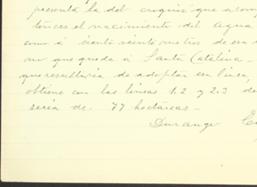 presenta la del croquis que acom
tonces el nacimiento del agua
como á ciento veinte metros de esa
que queda á Santa Catalina
que resultaria de adoptar en linea,
obtiene con las lineas 1.2 y 2.3 de
seria de 77 hectareas.-
Durango